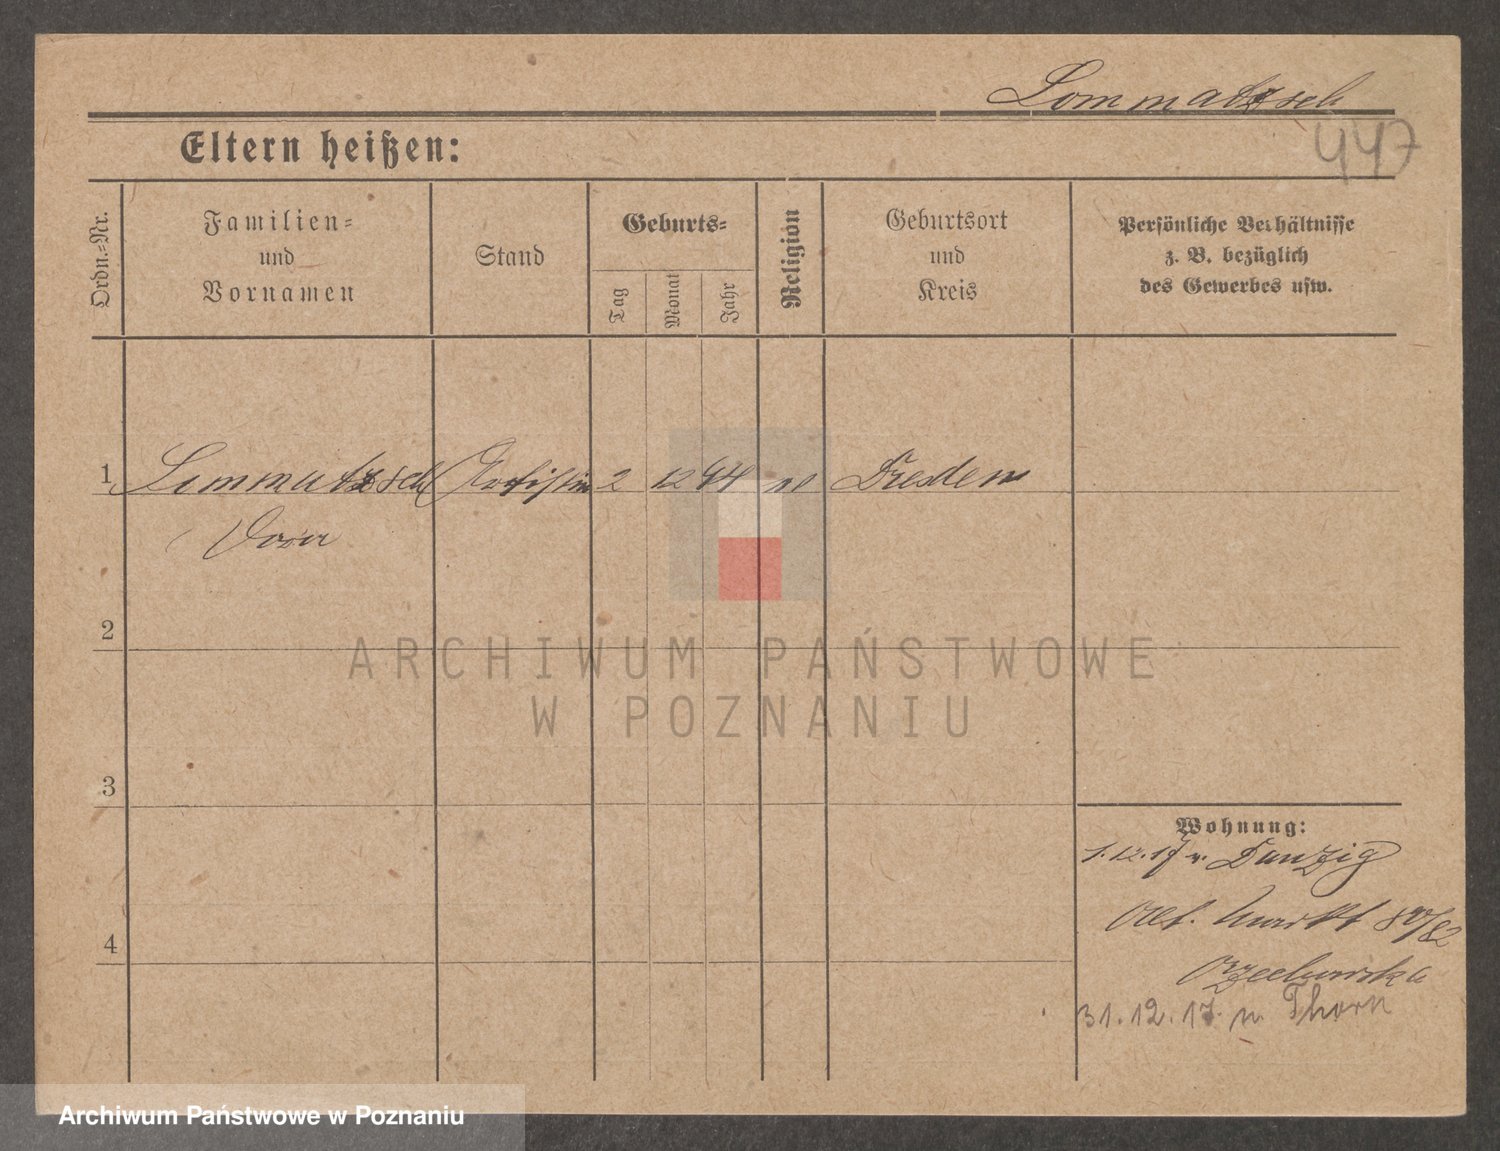 Lommatzsch
447
Eltern heißen:
Ordn.-Nr.
Familien-
und
Vornamen
Stand
Geburts-
Tag
Monat
Jahr
Religion
Geburtsort
und
Kreis
Persönliche Verhältnisse
z. B. bezüglich
des Gewerbes usw.
1 Lommatzsch Artistin 2 12 44 Dresden
2
ARCHIWUM PAŃSTWOWE
W POZNANIU
3
Wohnung:
1.12.17 v. Danzig
4
Alt. Markt 80/82
Orzechowska
31.12.17. n. Thorn
Archiwum Państwowe w Poznaniu